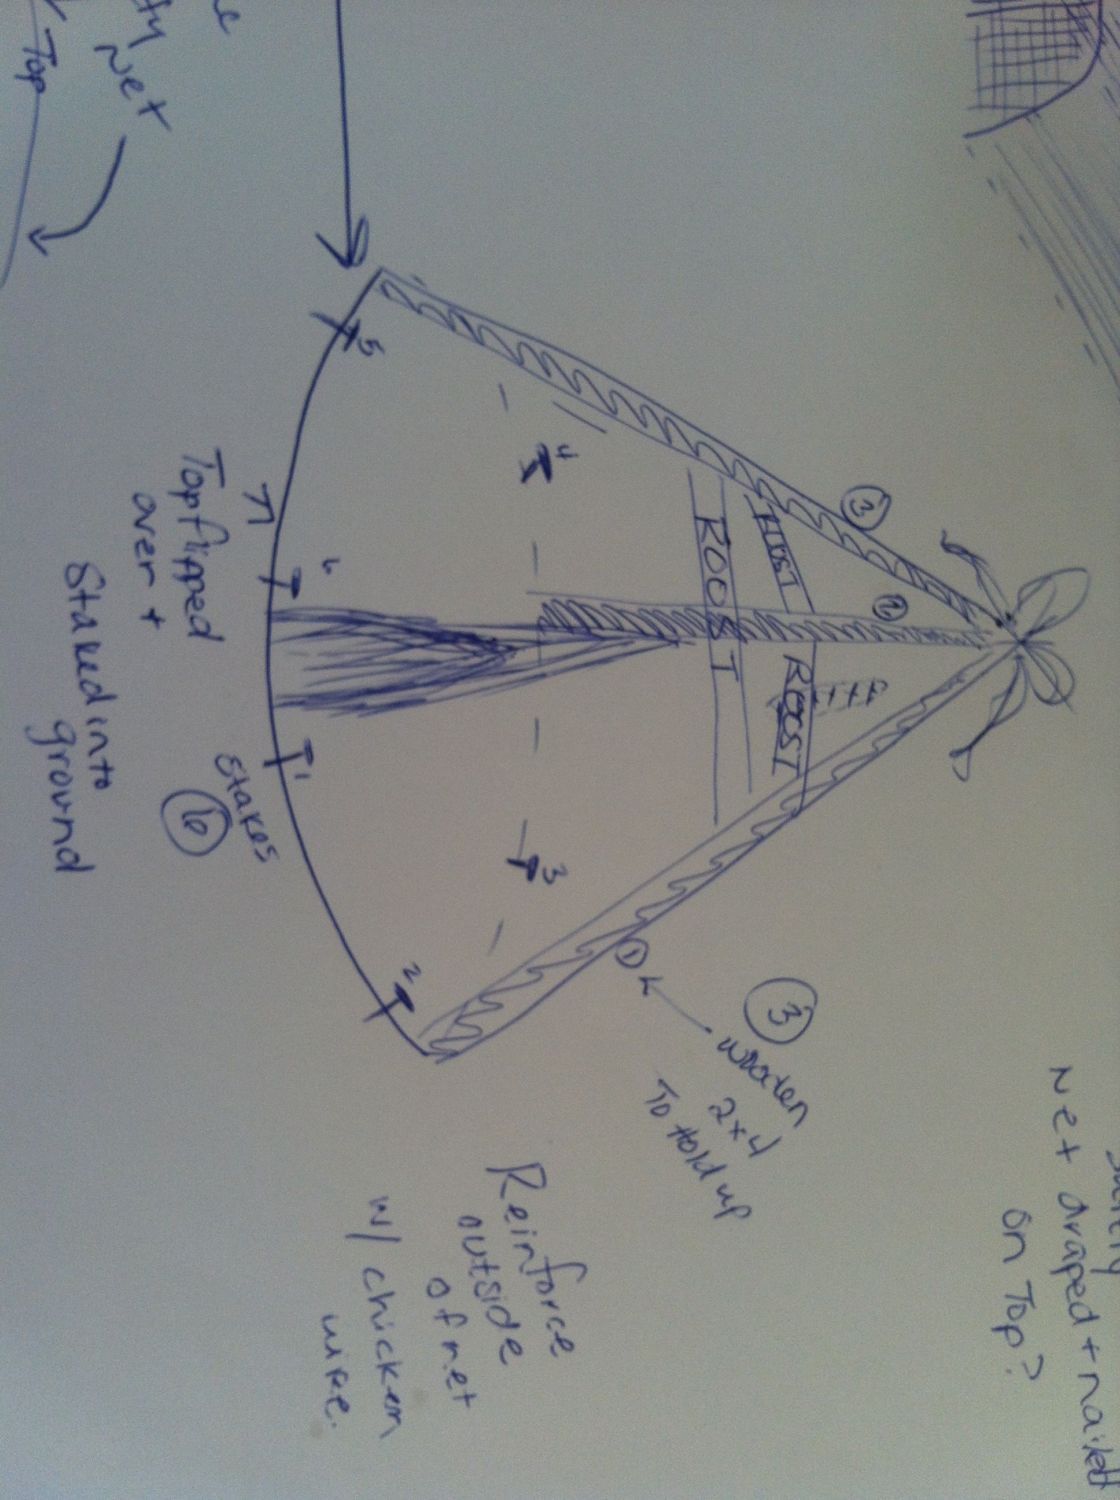 Net draped + nailed
on Top?
3
2
1
ROOST
ROOST
ROOST
3
wooden
2x4
To Hold up
Reinforce
outside
of net
w/ chicken
wire.
4
3
5
6
1
2
Stakes
6
Top flipped
over +
Staked into
ground
Net
Top